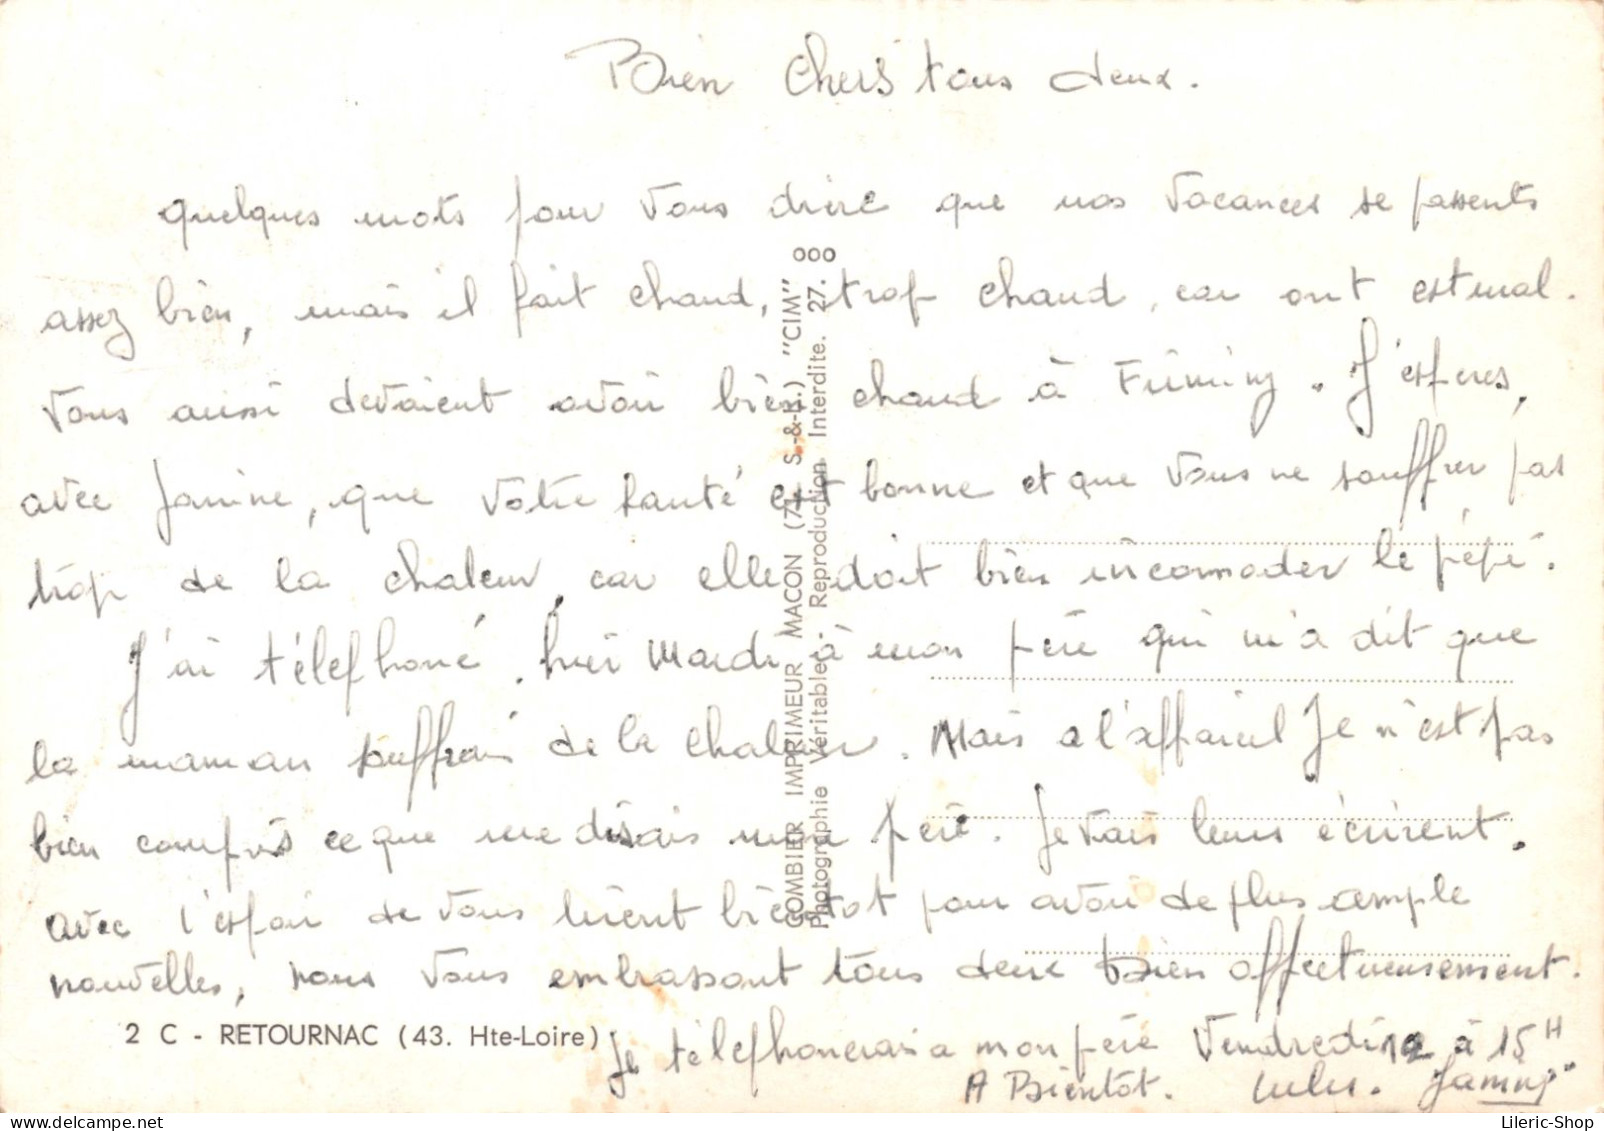 Bien Chers tous deux.
quelques mots pour vous dire que nos vacances se passents
assez bien, mais il fait chaud, trop chaud, car ont est mal.
Vous aussi devaient avoir bien chaud à Firminy. J'esperes,
avec Janine, que votre santé est bonne et que vous ne souffrer pas
trop de la chaleur, car elle doit bien incomoder le pépé.
J'ai téléphoné, hier Mardi à mon père qui m'a dit que
la maman souffrais de la chaleur. Mais a l'appareil Je n'est pas
bien compris ce que me disais mon père. Je vais leurs écrirent.
avec l'espoir de vous lirent bientot pour avoir de plus ample
nouvelles, nous vous embrassont tous deux bien affectueusement.
Je téléphonerais a mon père Vendredi 12 à 15H
A Bientôt.
2 C - RETOURNAC (43. Hte-Loire)
COMBIER IMPRIMEUR MACON (71. S.-&-L.) "CIM"
Photographie Véritable - Reproduction Interdite. 27. 000
Lileric-Shop